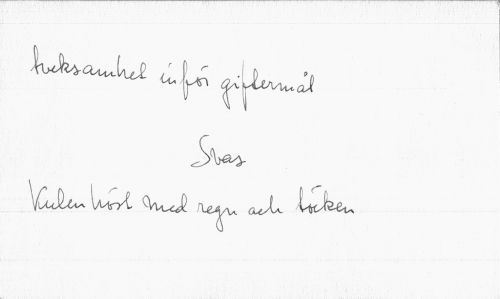 tveksamhet inför giftermål
Svas
Kulen höst med regn och töcken